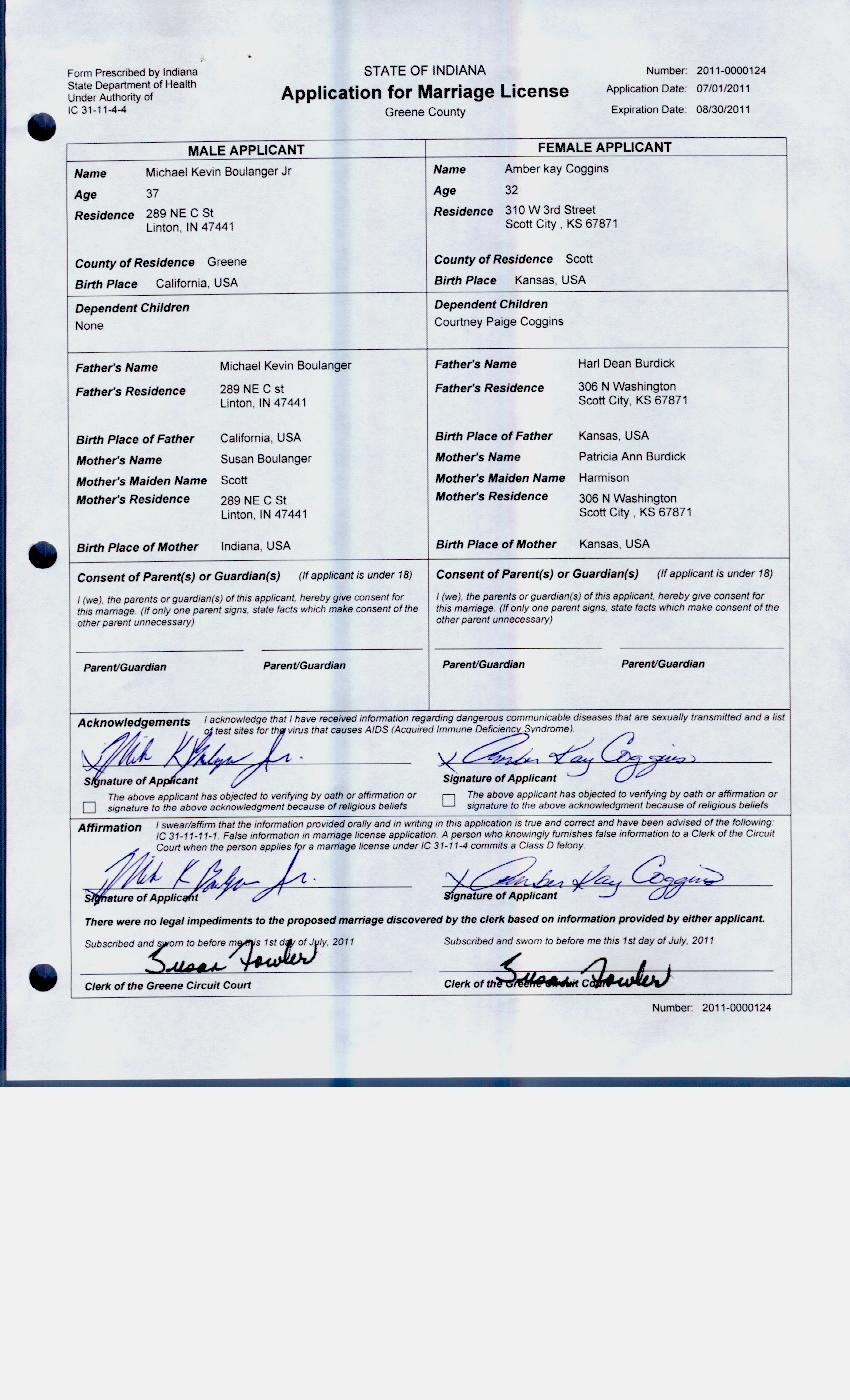 Form Prescribed by Indiana
State Department of Health
Under Authority of
IC 31-11-4-4
STATE OF INDIANA
Application for Marriage License
Greene County
Number: 2011-0000124
Application Date: 07/01/2011
Expiration Date: 08/30/2011
MALE APPLICANT
Name Michael Kevin Boulanger Jr
Age 37
Residence 289 NE C St
Linton, IN 47441
County of Residence Greene
Birth Place California, USA
Dependent Children
None
Father's Name Michael Kevin Boulanger
Father's Residence 289 NE C st
Linton, IN 47441
Birth Place of Father California, USA
Mother's Name Susan Boulanger
Mother's Maiden Name Scott
Mother's Residence 289 NE C St
Linton, IN 47441
Birth Place of Mother Indiana, USA
Consent of Parent(s) or Guardian(s) (If applicant is under 18)
I (we), the parents or guardian(s) of this applicant, hereby give consent for
this marriage. (If only one parent signs, state facts which make consent of the
other parent unnecessary)
Parent/Guardian Parent/Guardian
FEMALE APPLICANT
Name Amber kay Coggins
Age 32
Residence 310 W 3rd Street
Scott City , KS 67871
County of Residence Scott
Birth Place Kansas, USA
Dependent Children
Courtney Paige Coggins
Father's Name Harl Dean Burdick
Father's Residence 306 N Washington
Scott City, KS 67871
Birth Place of Father Kansas, USA
Mother's Name Patricia Ann Burdick
Mother's Maiden Name Harmison
Mother's Residence 306 N Washington
Scott City , KS 67871
Birth Place of Mother Kansas, USA
Consent of Parent(s) or Guardian(s) (If applicant is under 18)
I (we), the parents or guardian(s) of this applicant, hereby give consent for
this marriage. (If only one parent signs, state facts which make consent of the
other parent unnecessary)
Parent/Guardian Parent/Guardian
Acknowledgements I acknowledge that I have received information regarding dangerous communicable diseases that are sexually transmitted and a list
of test sites for the virus that causes AIDS (Acquired Immune Deficiency Syndrome).
K Jr.
Signature of Applicant
The above applicant has objected to verifying by oath or affirmation or
signature to the above acknowledgment because of religious beliefs
x Amber Kay Coggins
Signature of Applicant
The above applicant has objected to verifying by oath or affirmation or
signature to the above acknowledgment because of religious beliefs
Affirmation I swear/affirm that the information provided orally and in writing in this application is true and correct and have been advised of the following:
IC 31-11-11-1. False information in marriage license application. A person who knowingly furnishes false information to a Clerk of the Circuit
Court when the person applies for a marriage license under IC 31-11-4 commits a Class D felony.
K Jr.
Signature of Applicant
x Amber Kay Coggins
Signature of Applicant
There were no legal impediments to the proposed marriage discovered by the clerk based on information provided by either applicant.
Subscribed and sworn to before me this 1st day of July, 2011
Susan Fowler
Clerk of the Greene Circuit Court
Subscribed and sworn to before me this 1st day of July, 2011
Susan Fowler
Clerk of the Greene Circuit Court
Number: 2011-0000124